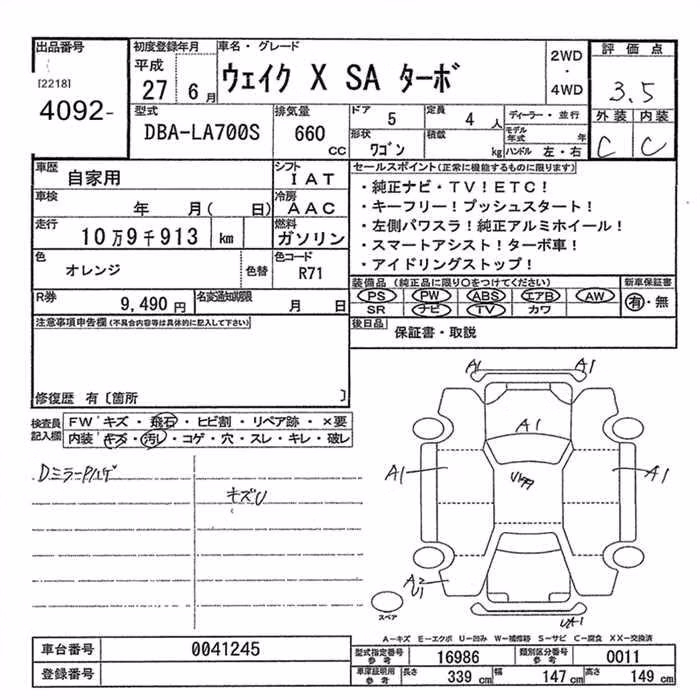 出品番号
[2218]
4092-
初度登録年月
平成
27 6月
車名・グレード
ウェイク X SA ターボ
2WD
・
4WD
評価点
3.5
外装 内装
C C
型式
DBA-LA700S
排気量
660 CC
ドア 5
定員 4 人
ディーラー・並行
形状 ワゴン
積載 kg
モデル年式 年
ハンドル 左・右
車歴 自家用
シフト IAT
車検 年 月( 日)
冷房 AAC
走行 10万9千913 km
燃料 ガソリン
色 オレンジ
色替
色コード R71
R券 9,490円
名変通知期限 月 日
セールスポイント(正常に機能するものに限ります)
・純正ナビ・TV!ETC!
・キーフリー!プッシュスタート!
・左側パワスラ!純正アルミホイール!
・スマートアシスト!ターボ車!
・アイドリングストップ!
装備品 (純正品に限り○をつけてください)
新車保証書
PS PW ABS エアB AW
有・無
SR ナビ TV カワ
後日品 保証書・取説
注意事項申告欄(不具合内容等は具体的に記入して下さい)
修復歴 有〔箇所 〕
検査員記入欄
FW゛キズ・飛石・ヒビ割・リペア跡・×要
内装゛キズ・汚レ・コゲ・穴・スレ・キレ・破レ
DミラーPハゲ
キズU
A1 A1
A1
A1 A1
A2
U1
UA1
スペア
A-キズ E-エクボ U-凹み W-補修跡 S-サビ C-腐食 XX-交換済
車台番号 0041245
登録番号
型式指定番号 参考 16986
類別区分番号 参考 0011
車庫証明用 参考 長さ 339 cm 幅 147 cm 高さ 149 cm